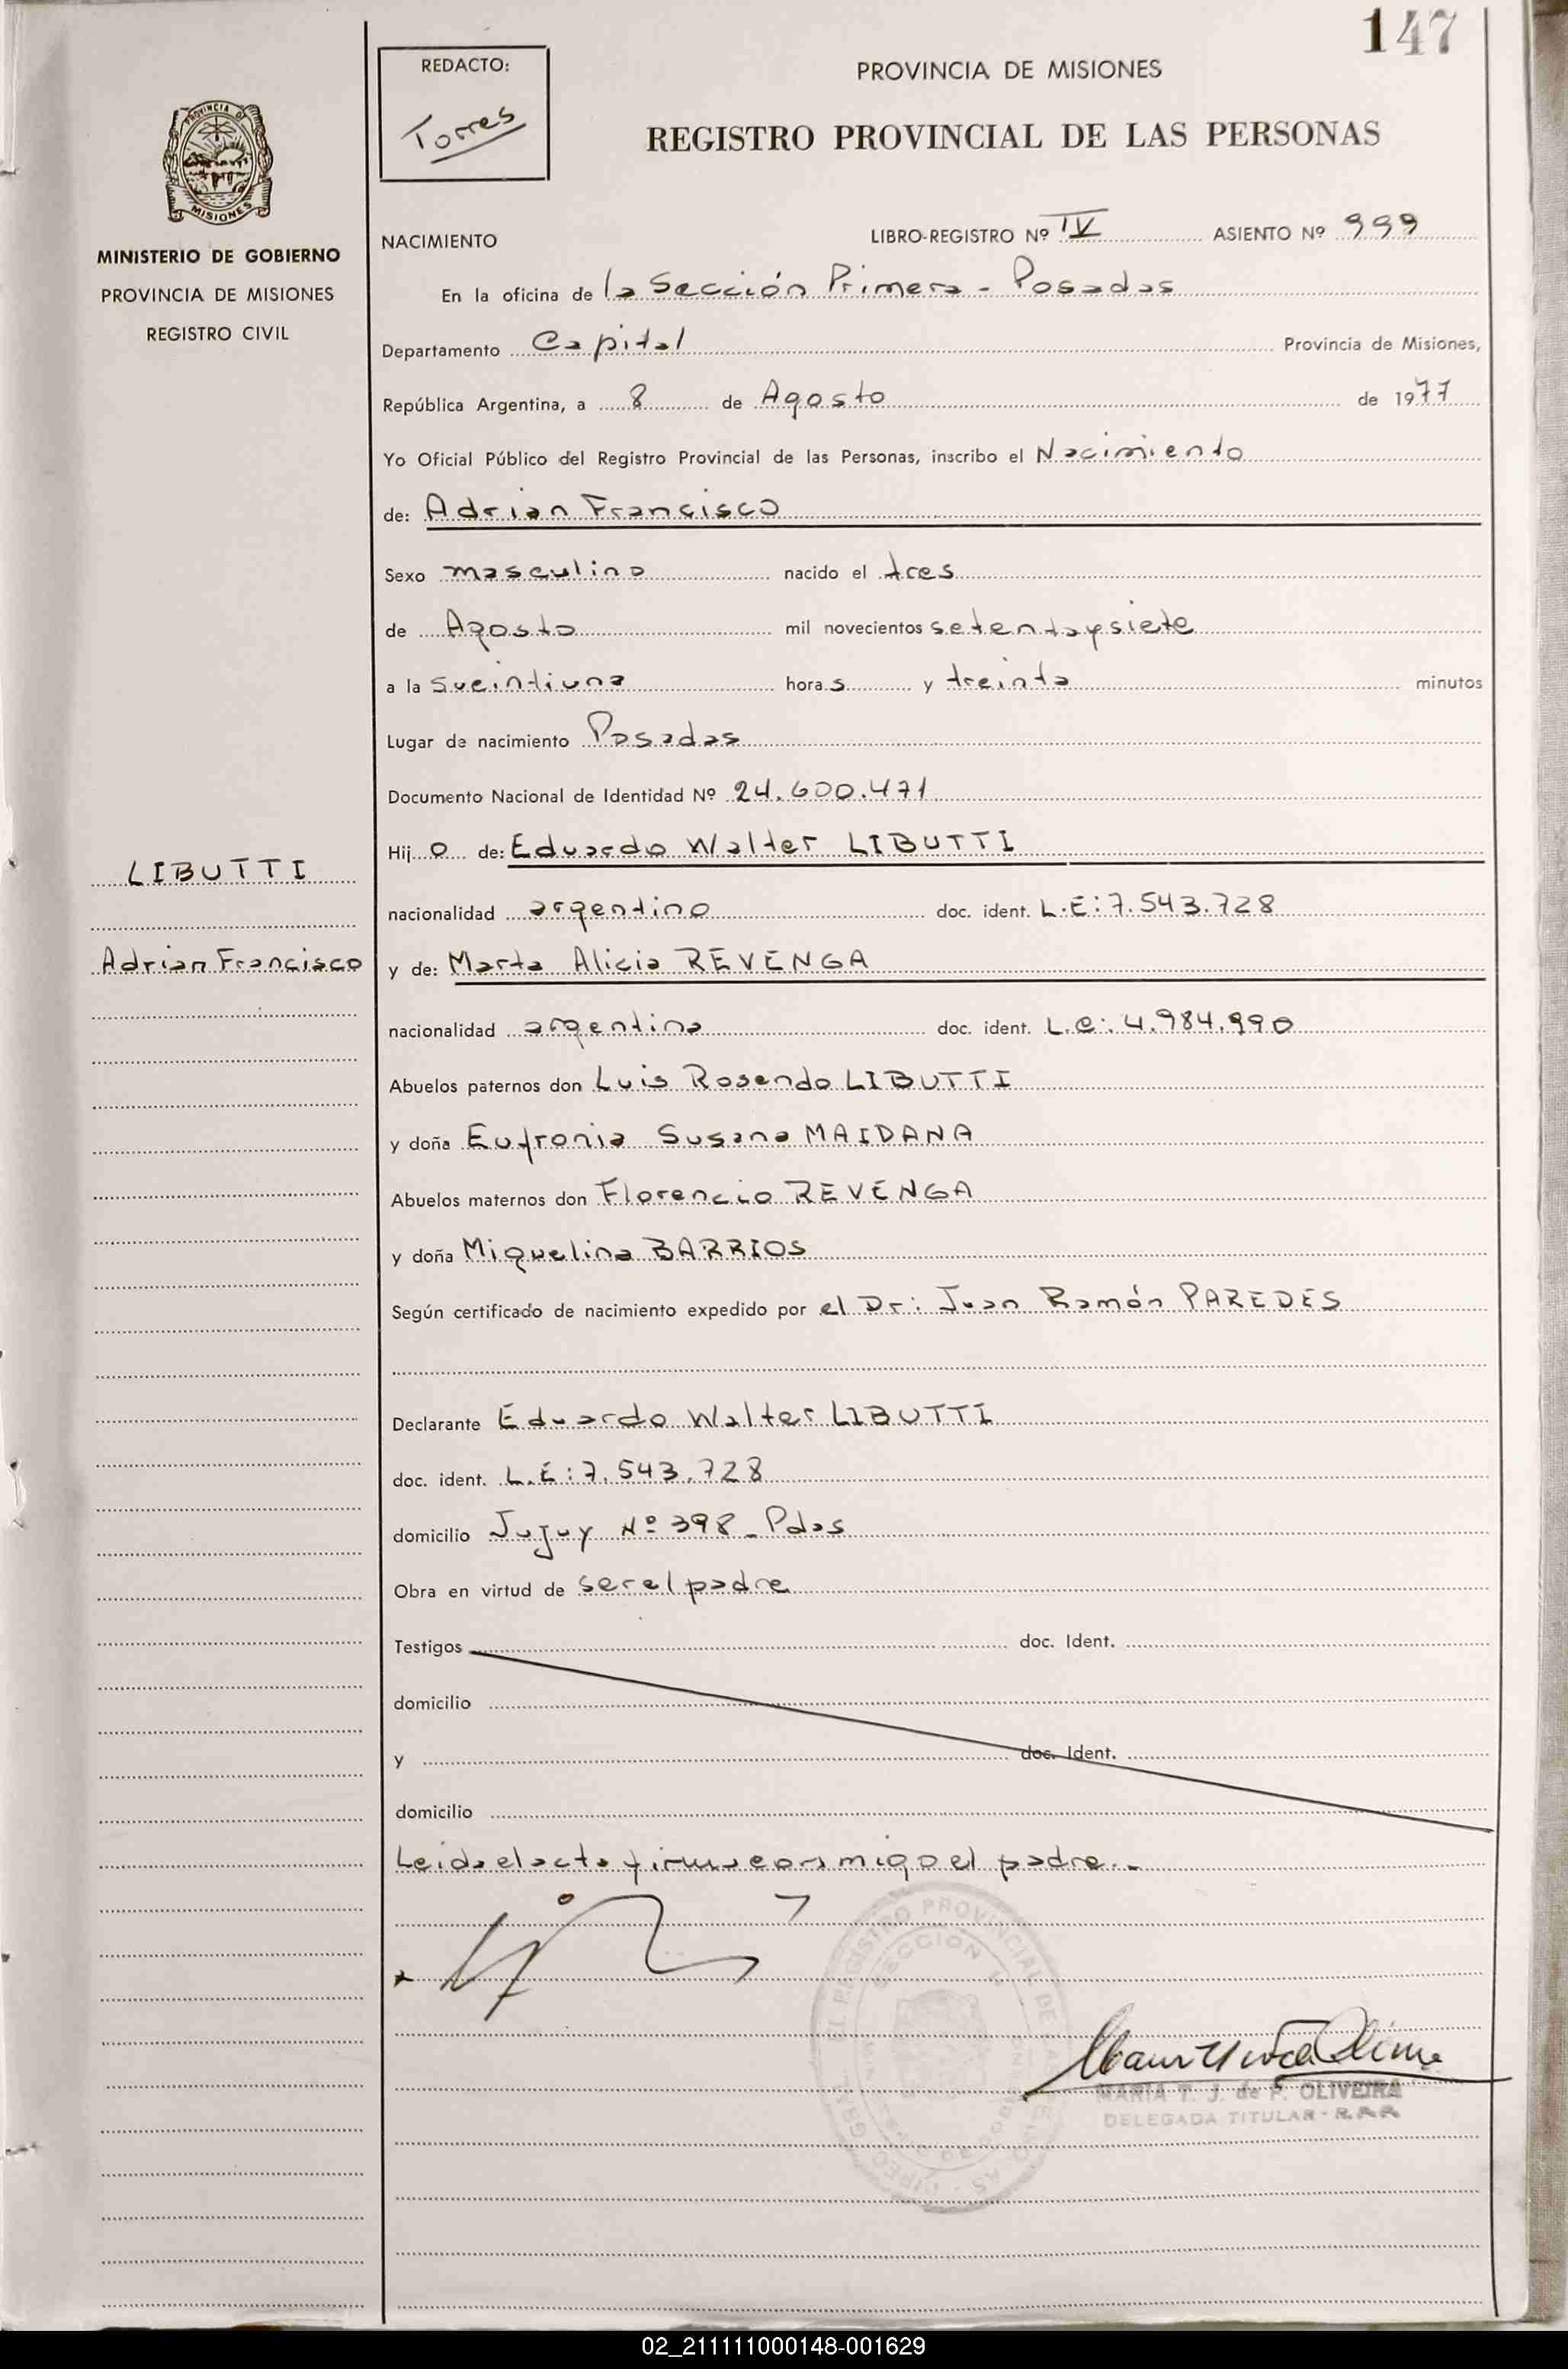 147
REDACTO:
Torres
PROVINCIA DE MISIONES
REGISTRO PROVINCIAL DE LAS PERSONAS
PROVINCIA DE
MISIONES
MINISTERIO DE GOBIERNO
PROVINCIA DE MISIONES
REGISTRO CIVIL
NACIMIENTO
LIBRO-REGISTRO Nº IV ASIENTO Nº 999
En la oficina de la Sección Primera - Posadas
Departamento Capital Provincia de Misiones,
República Argentina, a 8 de Agosto de 1977
Yo Oficial Público del Registro Provincial de las Personas, inscribo el Nacimiento
de: Adrian Francisco
Sexo masculino nacido el tres
de Agosto mil novecientos setentaysiete
a la sveintiuna horas y treinta minutos
Lugar de nacimiento Posadas
Documento Nacional de Identidad Nº 24.600.471
Hijo de: Eduardo Walter LIBUTTI
LIBUTTI
nacionalidad argentino doc. ident. L.E:7.543.728
Adrian Francisco
y de: Marta Alicia REVENGA
nacionalidad argentina doc. ident. L.C:4.984.990
Abuelos paternos don Luis Rosendo LIBUTTI
y doña Eufronia Susana MAIDANA
Abuelos maternos don Florencio REVENGA
y doña Miquelina BARRIOS
Según certificado de nacimiento expedido por el Dr: Juan Ramón PAREDES
Declarante Eduardo Walter LIBUTTI
doc. ident. L.E:7.543.728
domicilio Jujuy Nº 398 - Pdas
Obra en virtud de ser el padre
Testigos doc. Ident.
domicilio
y doc. Ident.
domicilio
Leida el acta firma conmigo el padre.-
REGISTRO PROVINCIAL DE LAS
SECCION
MARIA T. J. de P. OLIVEIRA
DELEGADA TITULAR - R.P.P.
02_211111000148-001629